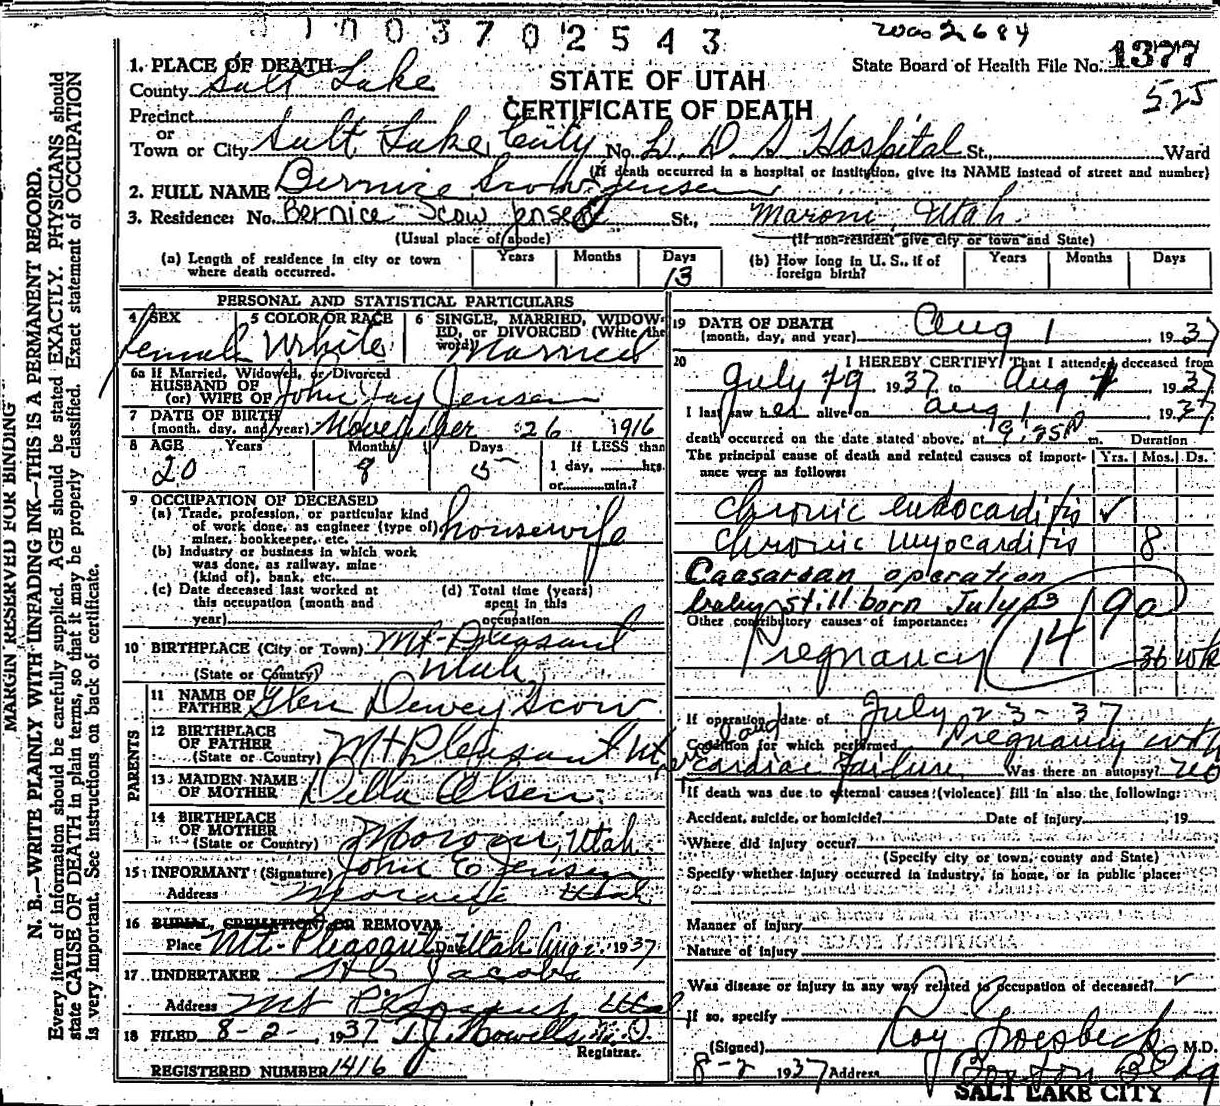 1003702543
1377
State Board of Health File No.
525
1. PLACE OF DEATH
County Salt Lake
STATE OF UTAH
CERTIFICATE OF DEATH
Precinct
or
Town or City Salt Lake City No. L. D. S Hospital St., Ward
(If death occurred in a hospital or institution, give its NAME instead of street and number)
2. FULL NAME Bernice Scow Jensen
3. Residence: No. Bernice Scow Jensen St., Maroni, Utah.
(Usual place of abode) (If non-resident give city or town and State)
(a) Length of residence in city or town where death occurred. Years Months Days 13
(b) How long in U. S., if of foreign birth? Years Months Days
PERSONAL AND STATISTICAL PARTICULARS
4 SEX female
5 COLOR OR RACE White
6 SINGLE, MARRIED, WIDOWED, or DIVORCED (Write the word) Married
6a If Married, Widowed, or Divorced
HUSBAND OF
(or) WIFE OF John Jay Jensen
7 DATE OF BIRTH
(month, day, and year) November 26 1916
8 AGE Years 20 Months 8 Days 5 If LESS than 1 day, hrs. or min.?
9 OCCUPATION OF DECEASED
(a) Trade, profession, or particular kind of work done, as engineer (type of) miner, bookkeeper, etc. housewife
(b) Industry or business in which work was done, as railway, mine (kind of), bank, etc.
(c) Date deceased last worked at this occupation (month and year)
(d) Total time (years) spent in this occupation
10 BIRTHPLACE (City or Town) Mt. Pleasant
(State or Country) Utah
PARENTS
11 NAME OF FATHER Glen Dewey Scow
12 BIRTHPLACE OF FATHER
(State or Country) Mt Pleasant Ut
13 MAIDEN NAME OF MOTHER Della Olsen
14 BIRTHPLACE OF MOTHER
(State or Country) Moroni, Utah
15 INFORMANT (Signature) John E Jensen
Address Moroni Utah
16 BURIAL, CREMATION, OR REMOVAL
Place Mt. Pleasant Utah Date Aug 2 1937
17 UNDERTAKER Jacobs
Address Mt Pleasant Utah
18 FILED 8-2- 1937 T. J. Howells M. D.
Registrar.
REGISTERED NUMBER 1416
19 DATE OF DEATH
(month, day, and year) Aug 1 1937
20 I HEREBY CERTIFY, That I attended deceased from
July 19 1937 to Aug 1 1937
I last saw her alive on Aug 1 1937
death occurred on the date stated above, at m. Duration
The principal cause of death and related causes of importance were as follows: Yrs. Mos. Ds.
Chronic endocarditis ✓
Chronic myocarditis 8
Caesarean operation
baby still born July 23
149a
Other contributory causes of importance:
Pregnancy 36 wk
If operation, date of July 23-37
Condition for which performed Pregnancy with
cardiac failure Was there an autopsy? no
If death was due to external causes (violence) fill in also the following:
Accident, suicide, or homicide? Date of injury 19
Where did injury occur?
(Specify city or town, county and State)
Specify whether injury occurred in industry, in home, or in public place:
Manner of injury
Nature of injury
Was disease or injury in any way related to occupation of deceased?
If so, specify
(Signed) Roy Groesbeck M.D.
8-2 1937 Address Boston Bldg
SALT LAKE CITY
MARGIN RESERVED FOR BINDING
N. B.—WRITE PLAINLY WITH UNFADING INK—THIS IS A PERMANENT RECORD.
Every item of information should be carefully supplied. AGE should be stated EXACTLY. PHYSICIANS should
state CAUSE OF DEATH in plain terms, so that it may be properly classified. Exact statement of OCCUPATION
is very important. See instructions on back of certificate.